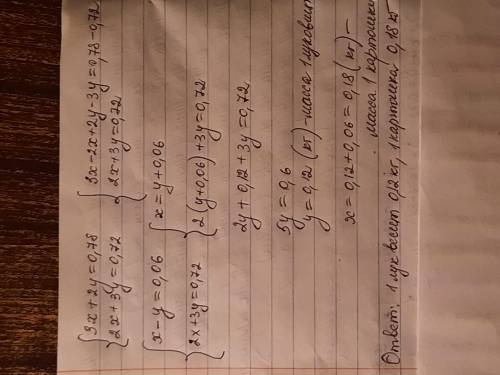 {3x + 2y = 0,78 {3x - 2x + 2y - 3y = 0,78 - 0,72
{2x + 3y = 0,72 {2x + 3y = 0,72
{x - y = 0,06 {x = y + 0,06
{2x + 3y = 0,72 {2(y + 0,06) + 3y = 0,72
2y + 0,12 + 3y = 0,72
5y = 0,6
y = 0,12 (кг) - масса 1 луковиц
x = 0,12 + 0,06 = 0,18 (кг) -
масса 1 картошки
Ответ: 1 лук весит 0,12 кг, 1 картошка 0,18 кг